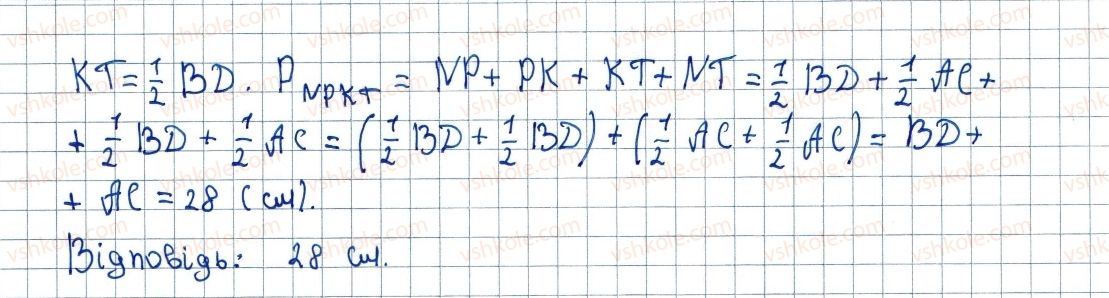 KT = 1/2 BD. P NPKT = NP + PK + KT + NT = 1/2 BD + 1/2 AC +
+ 1/2 BD + 1/2 AC = (1/2 BD + 1/2 BD) + (1/2 AC + 1/2 AC) = BD +
+ AC = 28 (см).
Відповідь: 28 см.